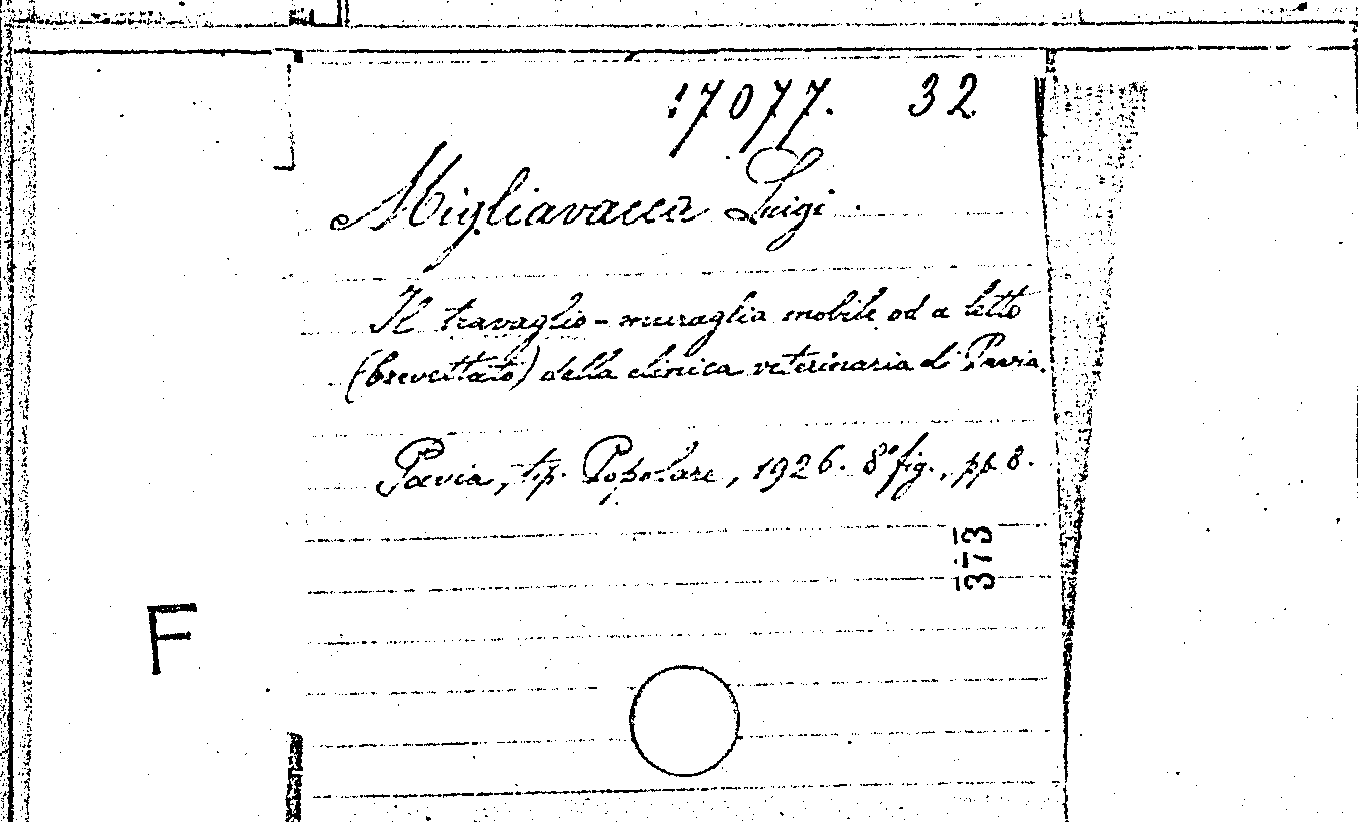 17077. 32
Migliavacca Luigi.
Il travaglio-muraglia mobile od a letto
(brevettato) della clinica veterinaria di Pavia.
Pavia, tip. Popolare, 1926. 8° fig., pp. 8.
373
F